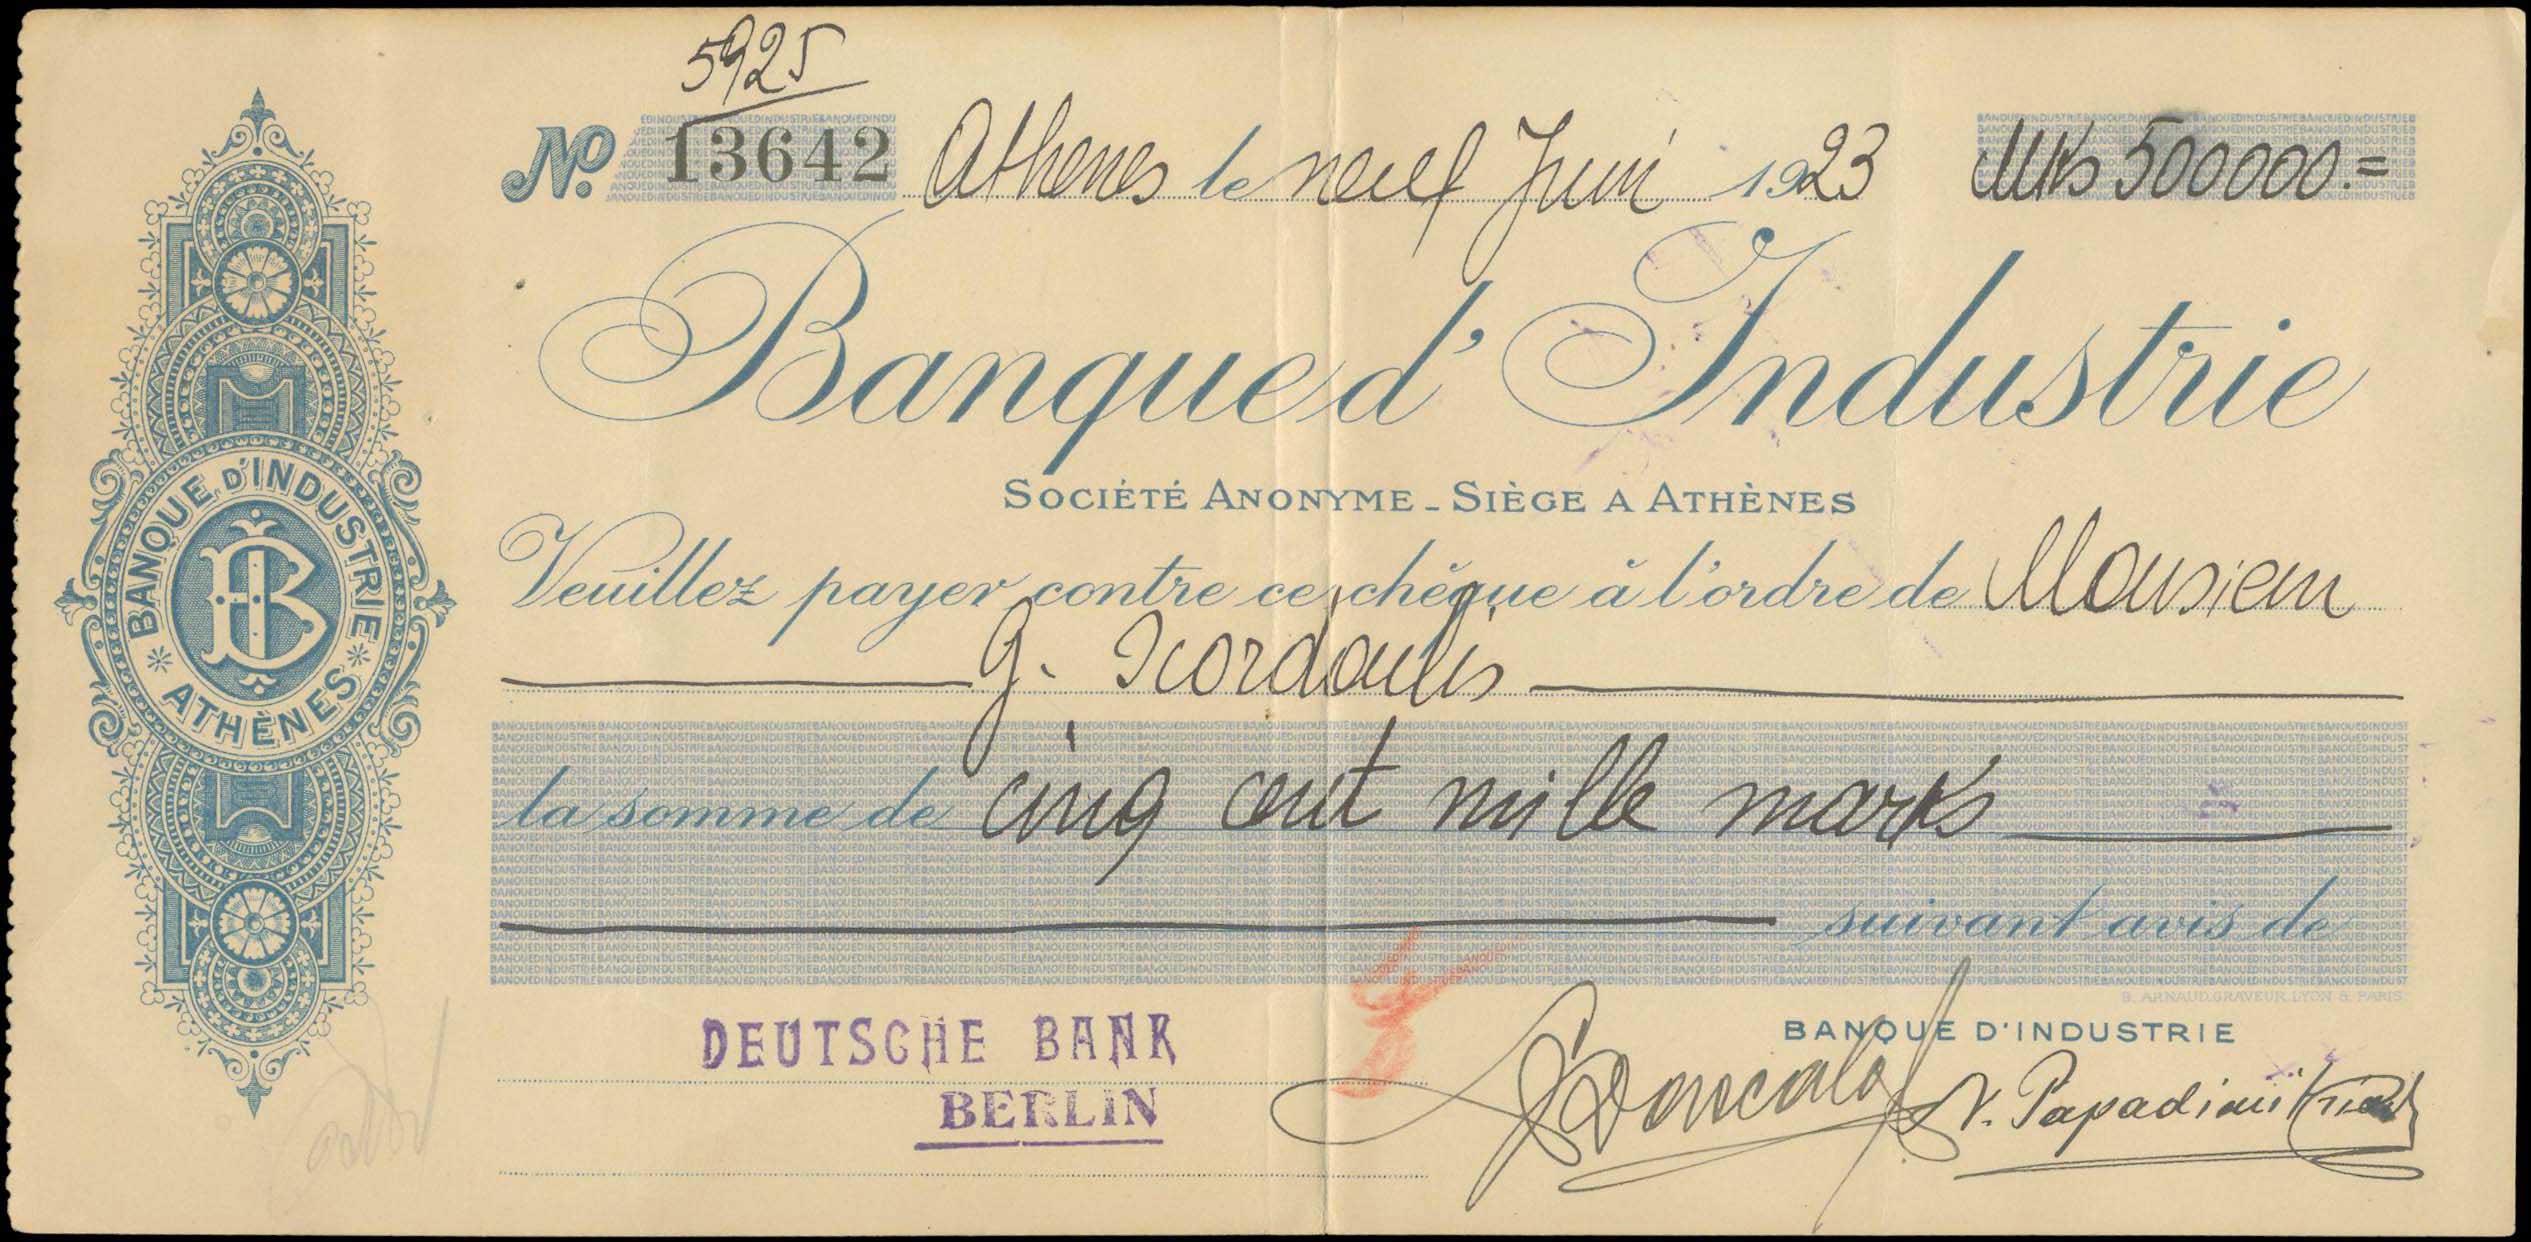 5925
No. 13642 Athenes le neuf Juin 1923 Mks 500000.=
Banque d'Industrie
SOCIÉTÉ ANONYME - SIÈGE A ATHÈNES
Veuillez payer contre ce chèque à l'ordre de Monsieur
G.
la somme de cinq cent mille marks
suivant avis de
B. ARNAUD, GRAVEUR LYON & PARIS
BANQUE D'INDUSTRIE
DEUTSCHE BANK
BERLIN
N. Papadimitriou
BANQUE D'INDUSTRIE
BI
* ATHÈNES *